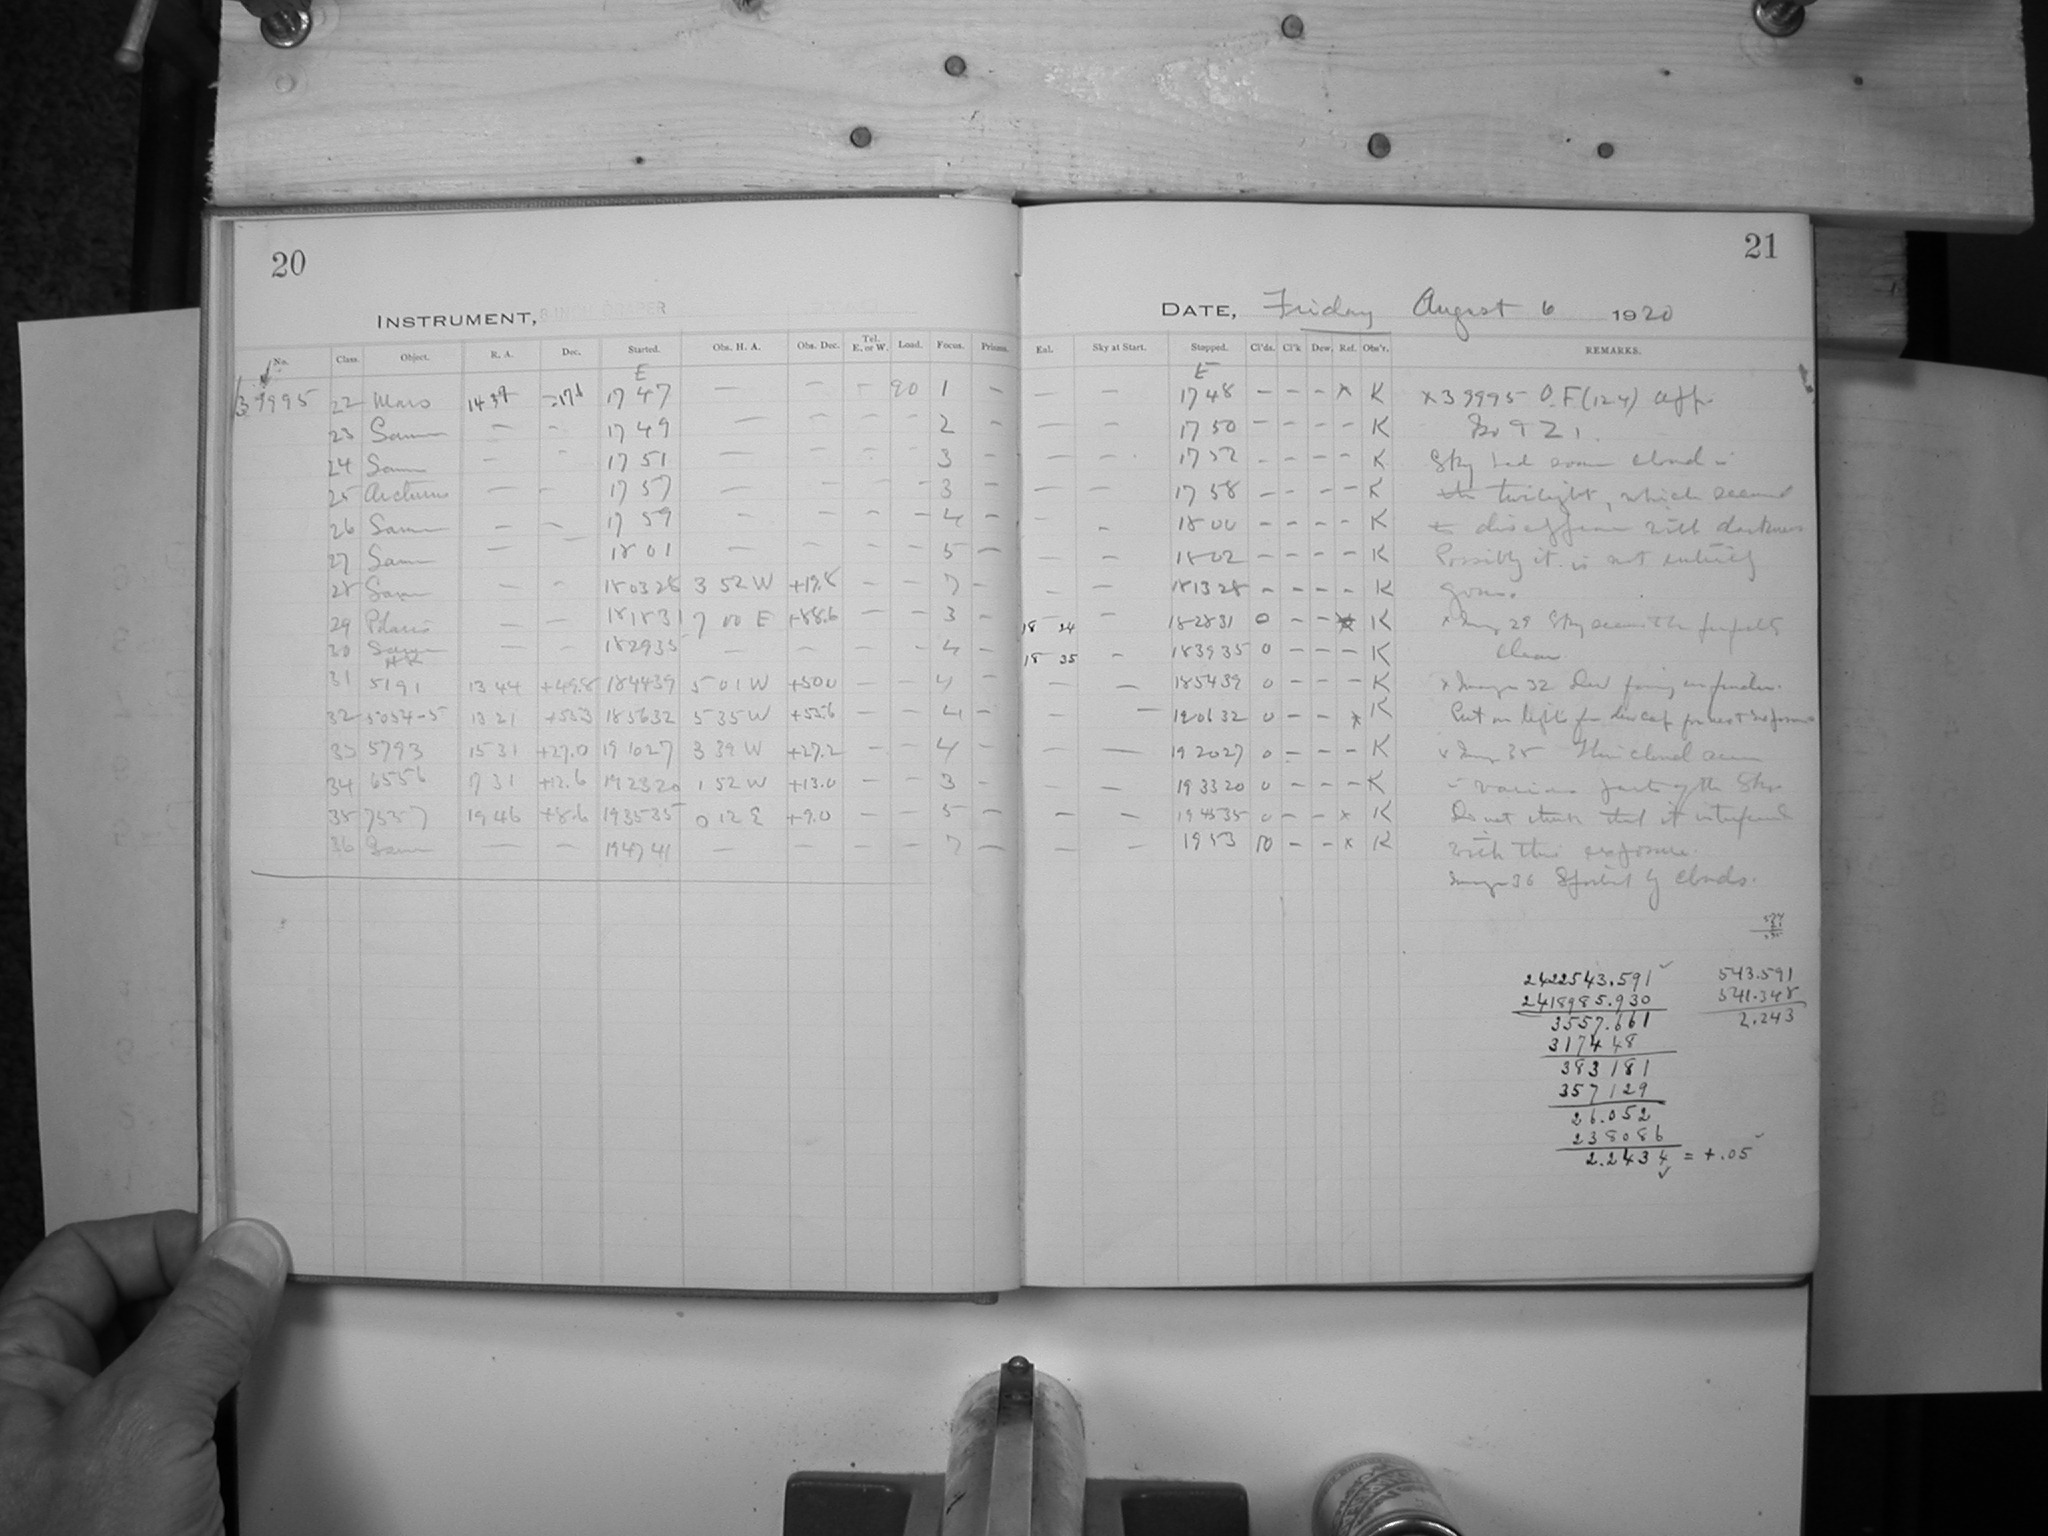 20
21
INSTRUMENT,
DATE, Friday August 6 1920
No. Class. Object. R. A. Dec. Started. Obs. H. A. Obs. Dec. Tel. E. or W. Load. Focus. Prisms. Eul. Sky at Start. Stopped. Cl'ds. Cl'k Dew. Ref. Obs'r. REMARKS.
E E
39995 22 Mars 14 39 17 47 — — – 20 1 – — — 17 48 – – – x K x 39995 O.F (124)
23 Same — – 17 49 — – – – 2 – — — 17 50 – – – – K
24 Same — – 17 51 — – – – 3 – — — 17 52 – – – – K Sky had some cloud in
25 Arcturus — – 17 57 — – – – 3 – — — 17 58 – – – – K twilight, which seemed
26 Same — – 17 59 — – – – 4 – — – 18 00 – – – – K to disappear with darkness
27 Same — – 18 01 — – – – 5 – — – 18 02 – – – – K Possibly it is not entirely
28 Same — – 18 03 28 3 52 W +19.8 – – 7 – — – 18 13 28 – – – – K gone.
29 Polaris — – 18 18 31 7 00 E +88.6 – – 3 – 18 24 – 18 28 31 0 – – x K x Image 29 Sky seems to be perfectly
30 Same — – 18 29 35 — – – – 4 – 18 35 – 18 39 35 0 – – – K clear
31 5191 13 44 +49.8 18 44 39 5 01 W +50.0 – – 4 – — — 18 54 39 0 – – – K x Image 32 Dew
32 5054-5 13 21 +55.3 18 56 32 5 35 W +55.6 – – 4 – — — 19 06 32 0 – – x K Put on light for dew cap for next exposure
33 5793 15 31 +27.0 19 10 27 3 39 W +27.2 – – 4 – — — 19 20 27 0 – – – K x Image 35 Thin cloud seen
34 6556 17 31 +12.6 19 23 20 1 52 W +13.0 – – 3 – — — 19 33 20 0 – – – K in various parts of the Sky.
35 7557 19 46 +8.6 19 35 35 0 12 E +9.0 – – 5 – — — 19 45 35 0 – – x K Do not think that it interfered
36 Same — – 19 47 41 — – – – 7 – — — 19 53 10 – – x K with this exposure.
Image 36 Spoiled by clouds.
2422543.591 543.591
2418985.930 541.348
3557.661 2.243
317448
383181
357129
26.052
238086
2.2434 = +.05